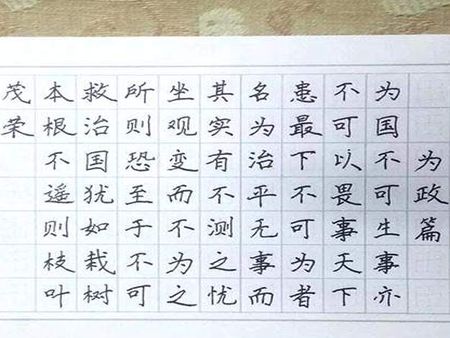 为政篇
为国不可生事亦
不可以畏事天下
患最下不可为者
名为治平无事而
其实有不测之忧
坐观变而不为之
所则恐至于不可
救治国犹如栽树
本根不遥则枝叶
茂荣